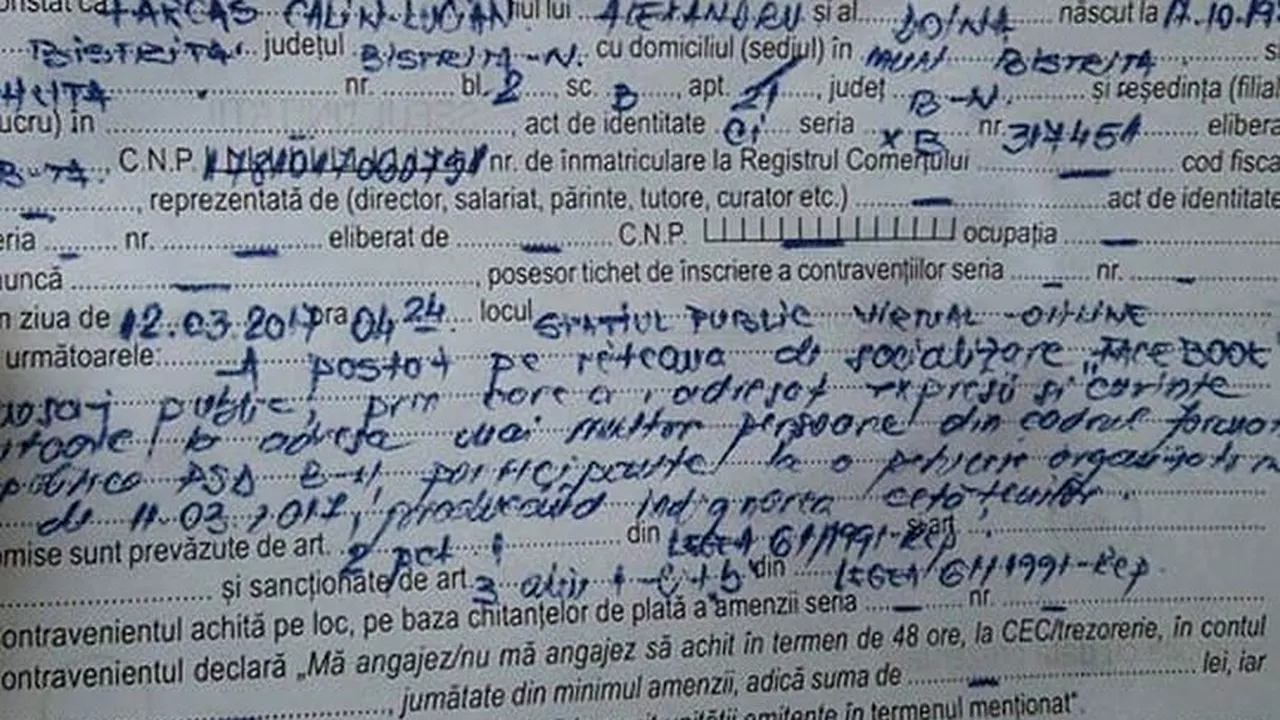 onstat că FARCAȘ CĂLIN-LUCIAN fiul lui ALEXANDRU și al DOINA născut la 17.10.19
BISTRIȚA județul BISTRIȚA-N. cu domiciliul (sediul) în MUN BISTRIȚA, s
nr. bl. 2, sc. B, apt. 21, județ B-N. și reședința (filial
ucru) în , act de identitate Ci seria XB nr. 317451 elibera
C.N.P. nr. de înmatriculare la Registrul Comerțului — cod fisca
—, reprezentată de (director, salariat, părinte, tutore, curator etc.) — act de identitate
eria — nr. — eliberat de — C.N.P. — ocupația —
uncă —, posesor tichet de înscriere a contravențiilor seria — nr. —
n ziua de 12.03.2017 ora 04 24 locul SPAȚIUL PUBLIC VIRTUAL - ONLINE
următoarele: A postat pe rețeaua de socializare „FACEBOOK"
public, prin care a adresat expresii și cuvinte
la adresa mai multor persoane din cadrul
PSD B-N participante la o petrecere
de 11.03.2017, producând indignarea cetățenilor.
mise sunt prevăzute de art. 2 pct 1 din LEGEA 61/1991-Rep
și sancționate de art. 3 alin 1 din LEGEA 61/1991-Rep.
ontravenientul achită pe loc, pe baza chitanțelor de plată a amenzii seria — nr. —
ontravenientul declară „Mă angajez/nu mă angajez să achit în termen de 48 ore, la CEC/trezorerie, în contul
, jumătate din minimul amenzii, adică suma de — lei, iar
emitente în termenul menționat".